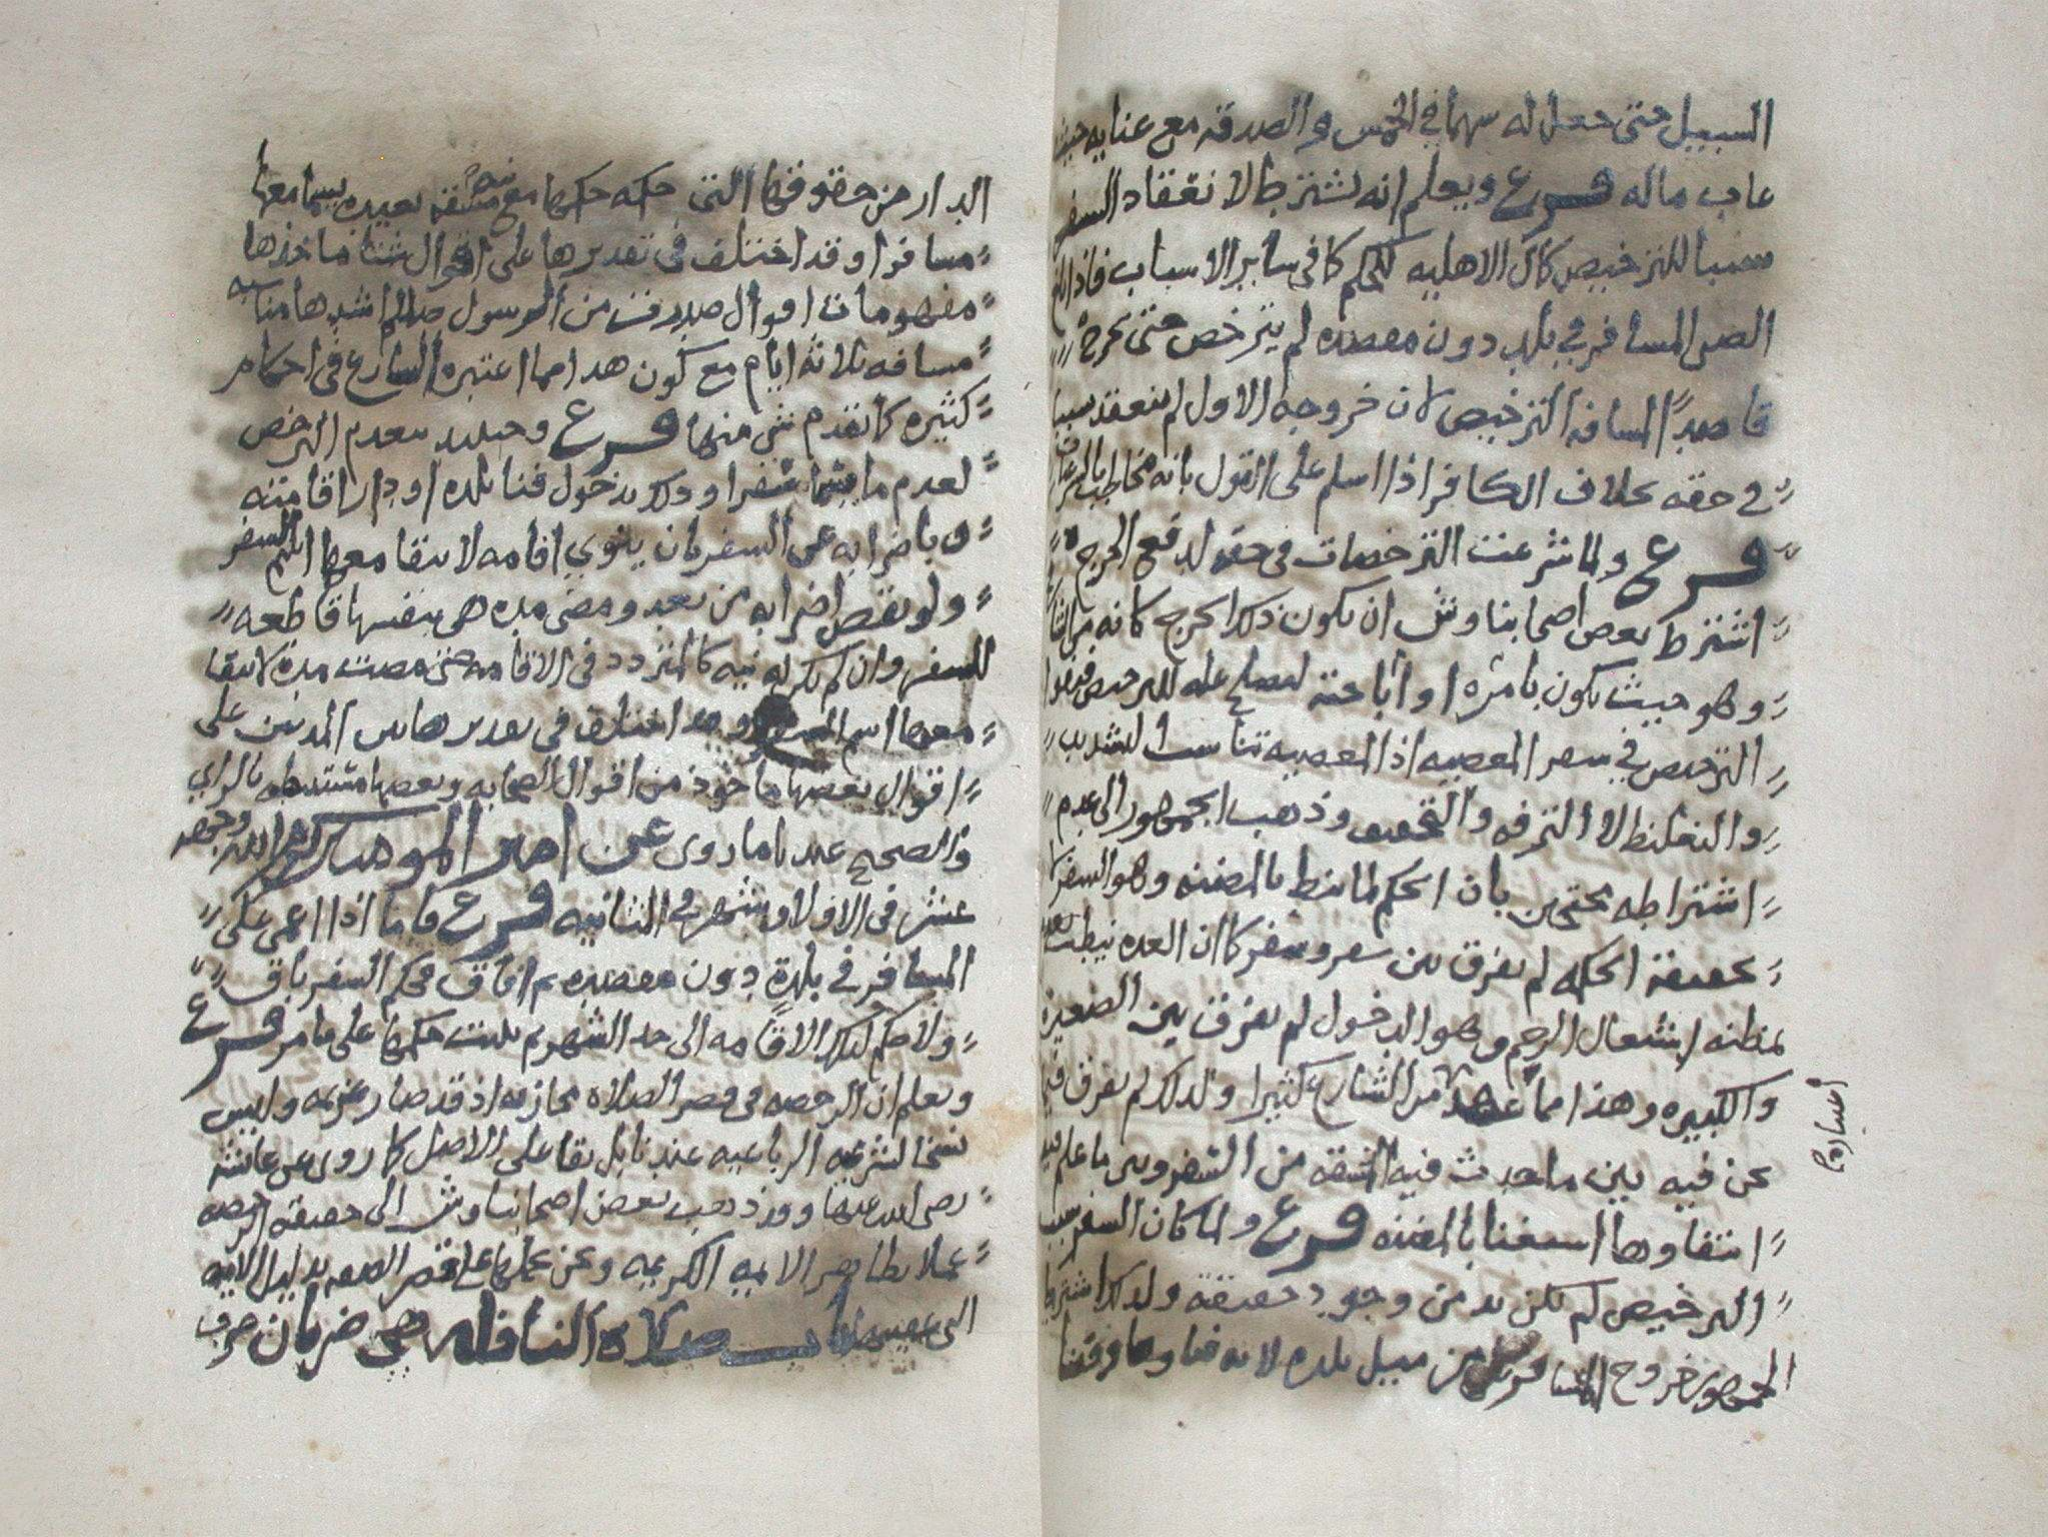 السبيل حتى جعل له سهما في الخمس والصدقه مع عنايه حيث
غاب ماله فرع ويعلم انه يشترط لانعقاد السفر
سببا للترخيص كمال الاهليه للحكم كما في ساير الاسباب فاذا بلغ
الصبي المسافر في بلد دون مقصده لم يترخص حتى يخرج
قاصدا لمسافه الترخيص لان خروجه الاول لم ينعقد سببا
في حقه بخلاف الكافر اذا اسلم على القول بانه مخاطب
فرع ولما شرعت الترخصات في حقه لدفع الحرج
اشترط بعض اصحابنا وش ان يكون ذلك الحرج كانه من الشارع
وهو حيث يكون بامره او اباحته ليصلح عله للترخيص فمنعوا
الترخيص في سفر المعصيه اذ المعصيه تناسب التشديد
والتغليظ لا الترفه والتخفيف وذهب الجمهور الى عدم
اشتراطه محتجين بان الحكم لما نيط بالمظنه وهو السفر لا
بحقيقة الحكمه لم يفرق بين سفر وسفر كما ان العده نيطت
بمظنه اشتغال الرحم وهو الدخول لم يفرق بين الصغيره
والكبيره وهذا مما عهد من الشارع كثيرا ولذلك لم يفرق
نحن فيه بين ما حدث فيه المشقه من السفر وبين ما علم فيه
انتفاوها استغنا بالمظنه فرع ولما كان السفر سبب
الترخيص لم يكن بد من وجود حقيقة ولذلك اشترط
الجمهور خروج المسافر من ميل بلده لانه فناوها وفنا
الدار من حقوقها التي حكمه حكمها مع مشقه بعيده يسما معها
مسافرا وقد اختلف في تقديرها على اقوال شتا ماخذها
مفهومات اقوال صدرت من الرسول صلعم اشدها مناسبه
مسافه ثلاثة ايام مع كون هذا مما اعتبره الشارع في احكام
كثيره كما تقدم شي منها فرع وحينئذ ينعدم الترخص
لعدم ما يسما سفرا وذلك بدخول فنا بلده او دار اقامته
وباضرابه عن السفر بان ينوي اقامه لا يبقا معها اسم السفر
ولو نقص اضرابه من بعد ومضى مده هي بنفسها قاطعه
للسفر وان لم يكن له نيه كالمتردد في الاقامه حتى مضت مدة لا يبقا
معها اسم السفر وقد اختلف في تقدير هاتين المدتين على
اقوال بعضها ماخوذ من اقوال الصحابه وبعضها مستنبطه بالراي
والصحيح عندنا ما روى عن امير المومنين كرم الله وجهه
عشر في الاولى وشهر في الثانيه فرع فاما اذا اغمي على
المسافر في بلدة دون مقصده ثم افاق فحكم السفر باق
ولا حكم لتلك الاقامه الى حد الشهر ثم يثبت حكمها على ما مر فرع
ويعلم ان الرخصه في قصر الصلاه مجازيه اذ قد صار عزيمه وليس
نسخا لشرعيه الرباعيه عندنا بل بقا على الاصل كما روى عن عائشه
رضي الله عنها وقد ذهب بعض اصحابنا وش الى حقيقه الرخصه
عملا بظاهر الايه الكريمه ونحن نحملها على قصر الصفه بدليل الايه
التي عقيبها باب صلاة النافله وهي ضربان ضرب